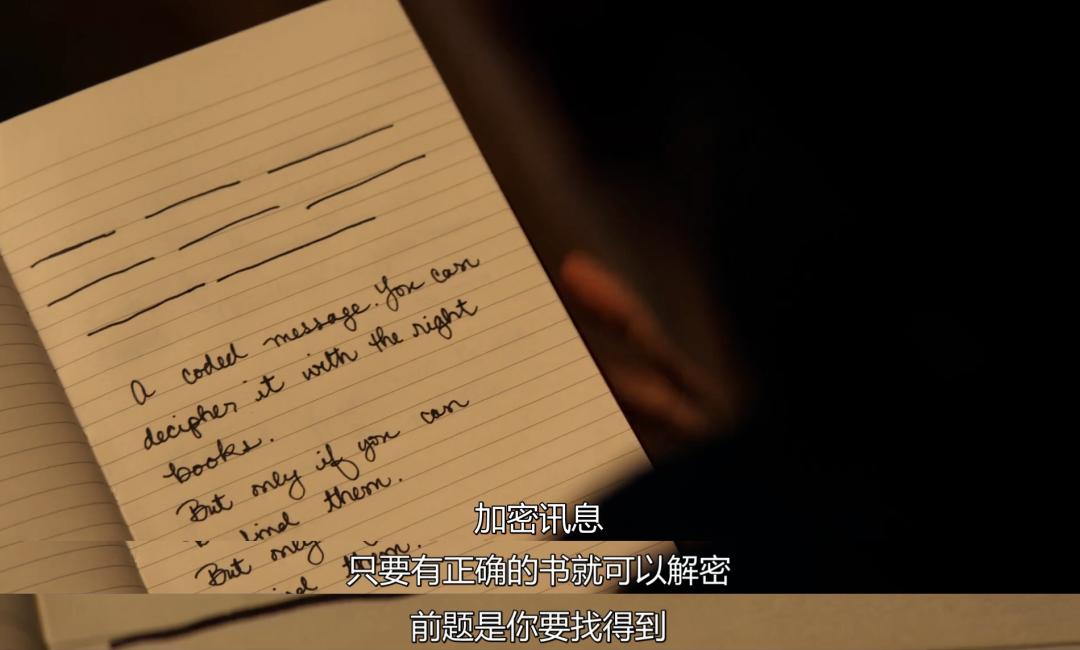 A coded message. You can
decipher it with the right
books.
But only if you can
find them.
But only
them.
加密讯息
只要有正确的书就可以解密
前题是你要找得到